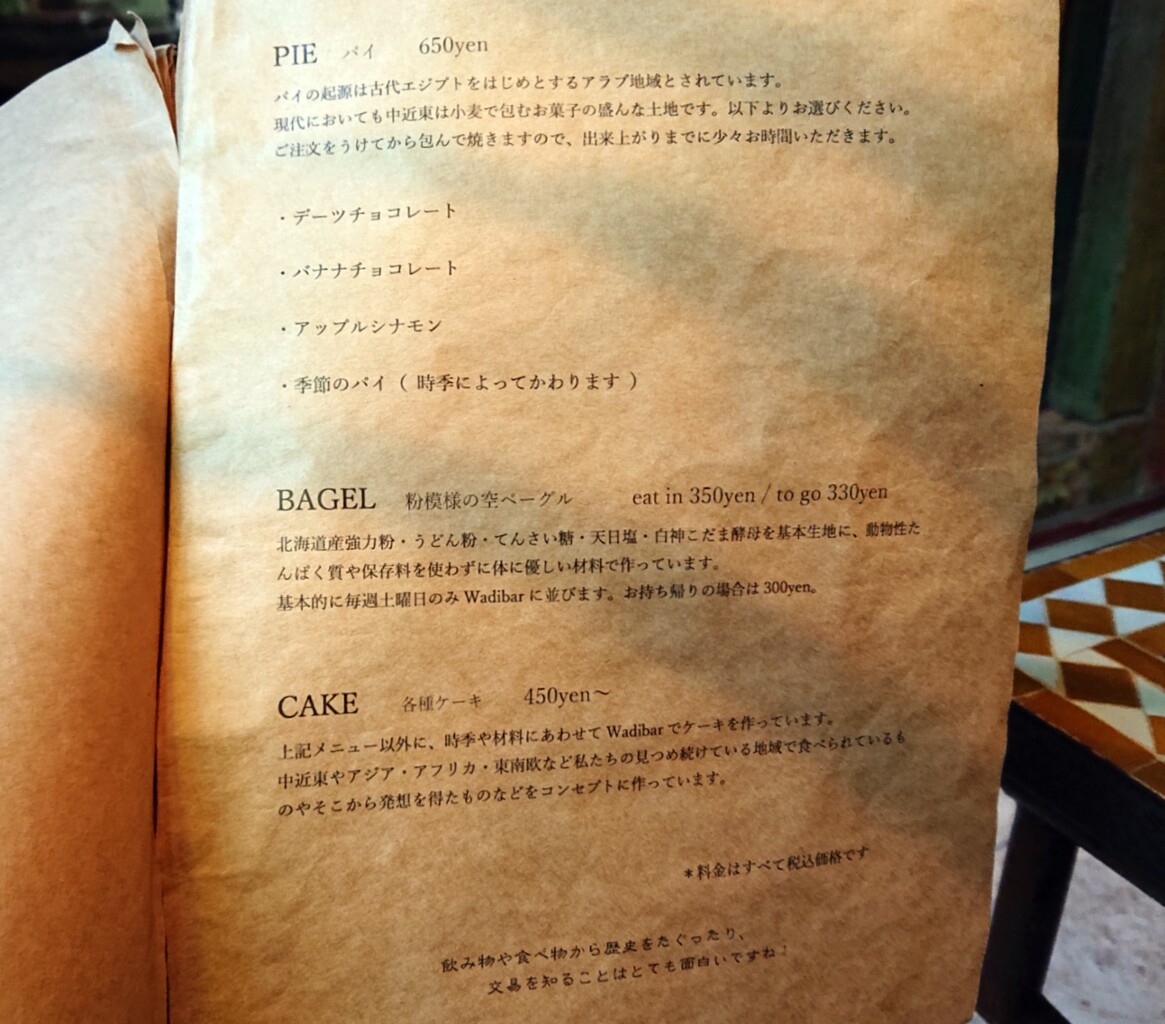 PIE パイ 650yen
パイの起源は古代エジプトをはじめとするアラブ地域とされています。
現代においても中近東は小麦で包むお菓子の盛んな土地です。以下よりお選びください。
ご注文をうけてから包んで焼きますので、出来上がりまでに少々お時間いただきます。
・デーツチョコレート
・バナナチョコレート
・アップルシナモン
・季節のパイ（ 時季によってかわります ）
BAGEL 粉模様の空ベーグル eat in 350yen / to go 330yen
北海道産強力粉・うどん粉・てんさい糖・天日塩・白神こだま酵母を基本生地に、動物性た
んぱく質や保存料を使わずに体に優しい材料で作っています。
基本的に毎週土曜日のみ Wadibar に並びます。お持ち帰りの場合は 300yen。
CAKE 各種ケーキ 450yen～
上記メニュー以外に、時季や材料にあわせて Wadibar でケーキを作っています。
中近東やアジア・アフリカ・東南欧など私たちの見つめ続けている地域で食べられているも
のやそこから発想を得たものなどをコンセプトに作っています。
＊料金はすべて税込価格です
飲み物や食べ物から歴史をたぐったり、
文易を知ることはとても面白いですね♩